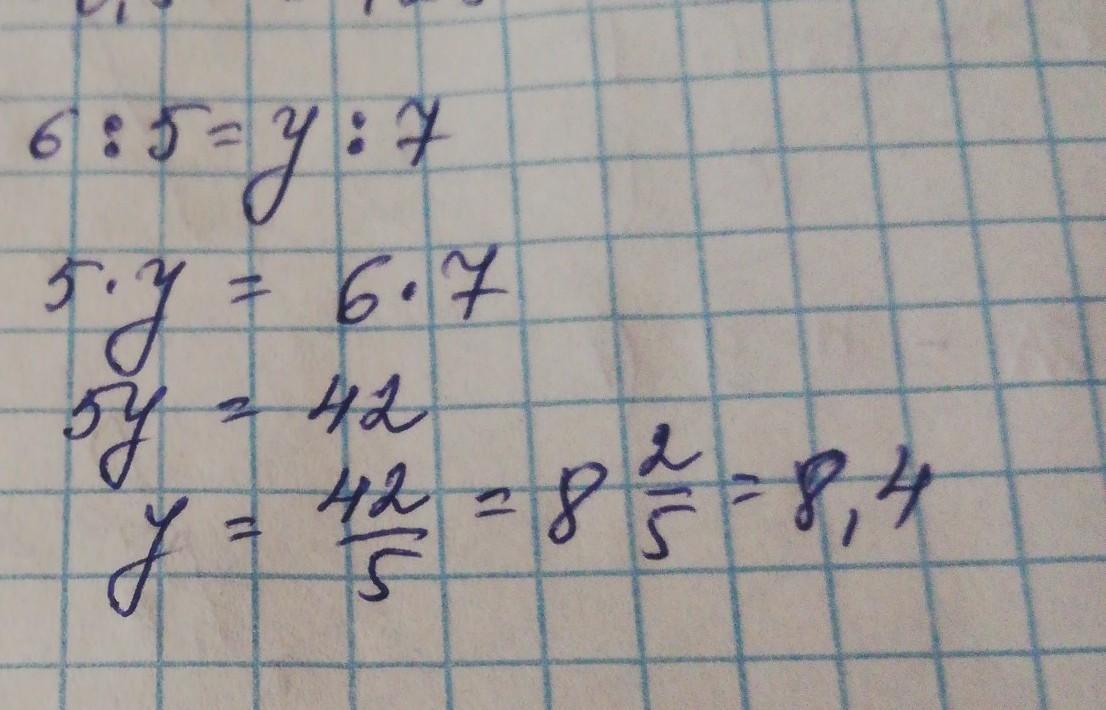 6 : 5 = y : 7
5 · y = 6 · 7
5y = 42
y = 42/5 = 8 2/5 = 8,4